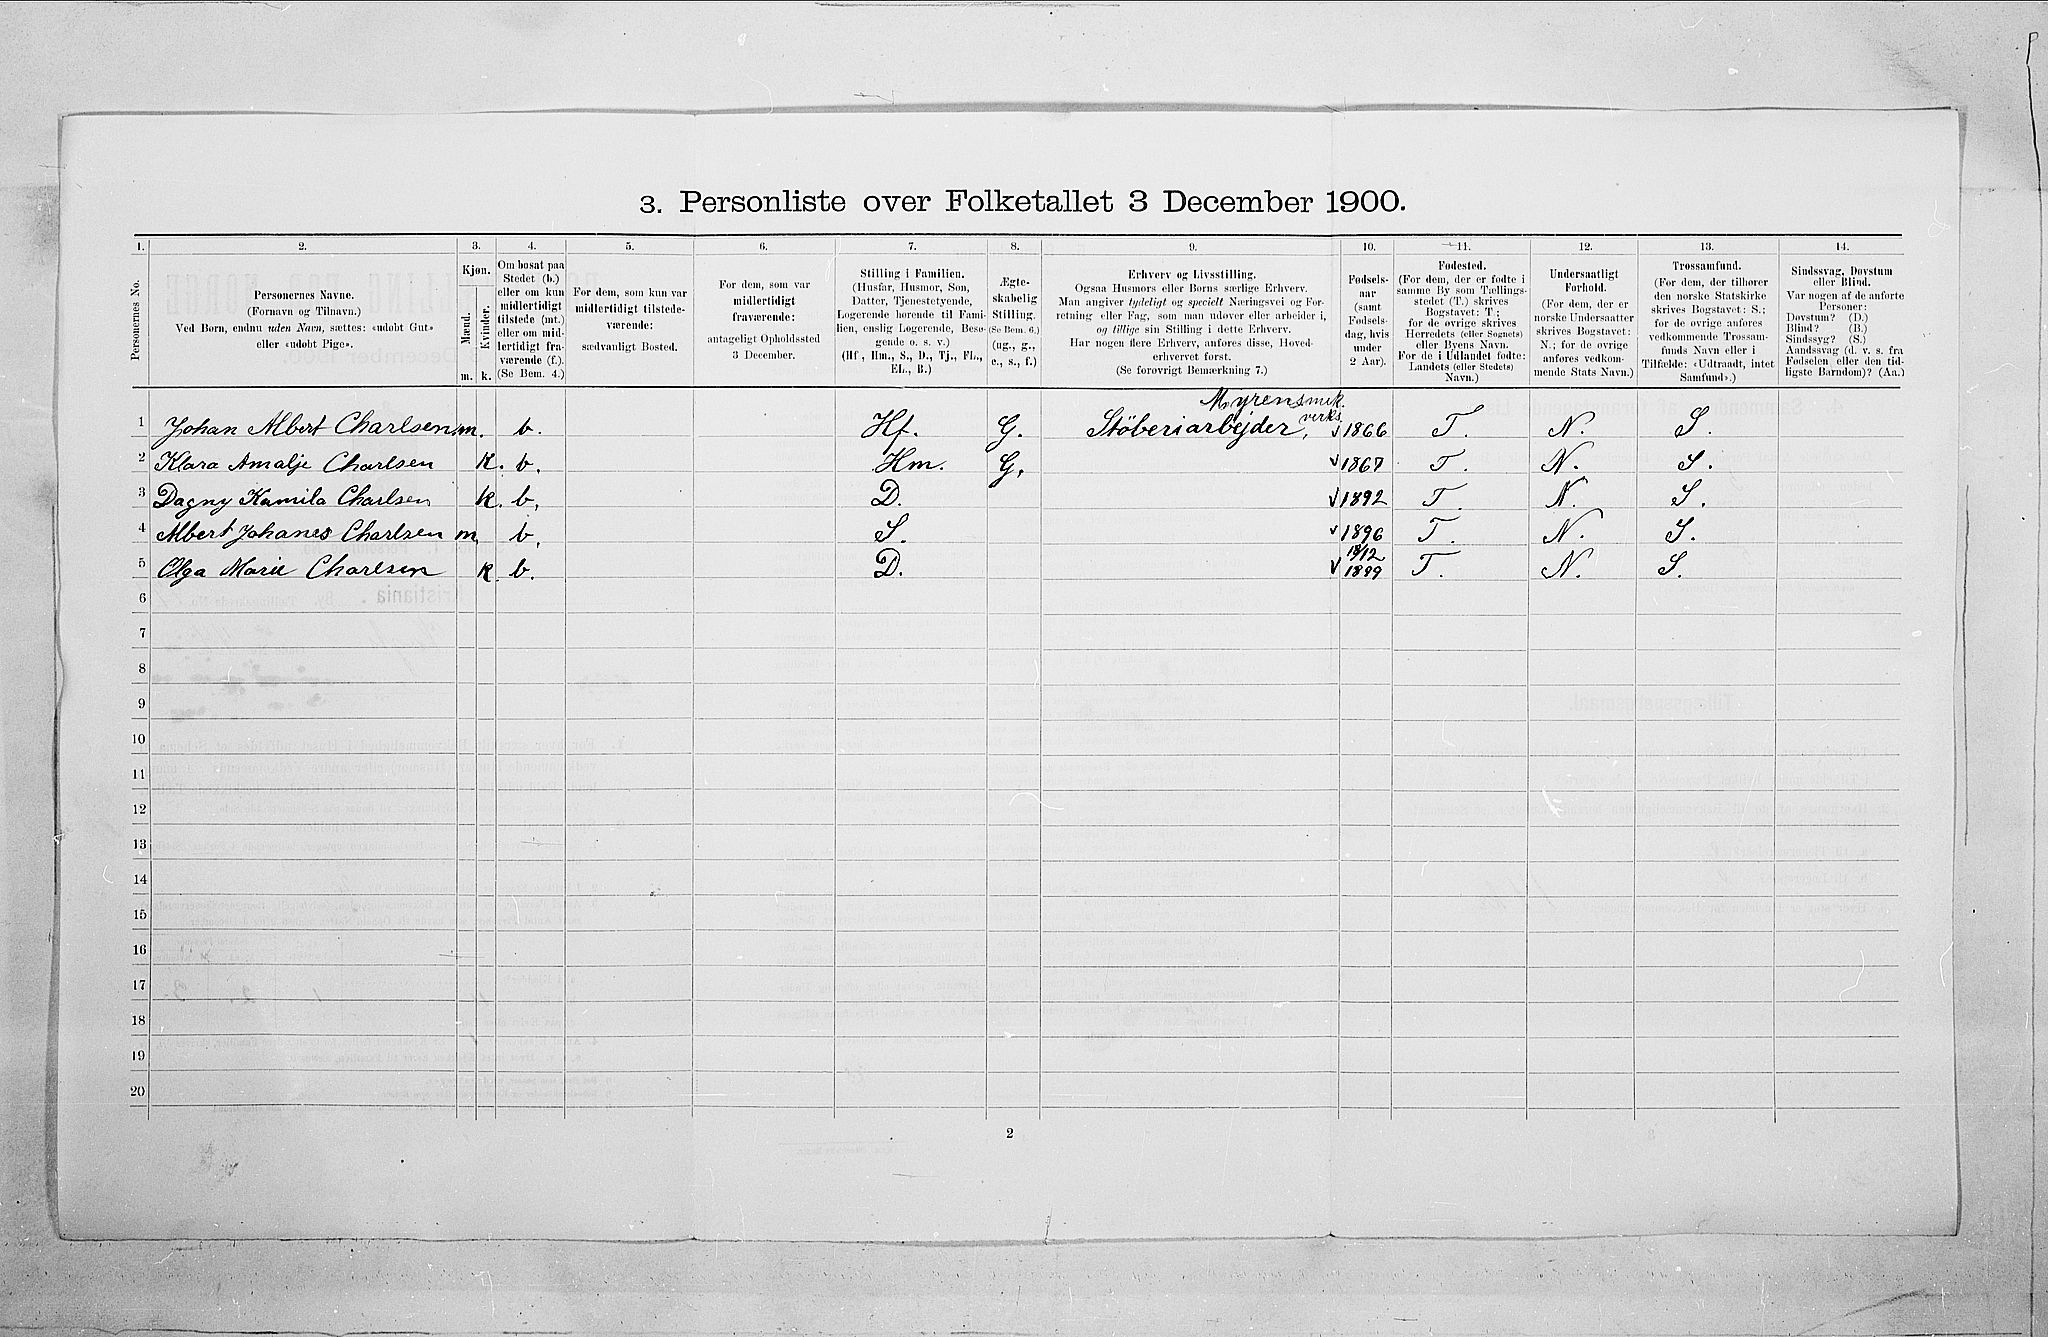 3. Personliste over Folketallet 3 December 1900.
1. 2. 3. 4. 5. 6. 7. 8. 9. 10. 11. 12. 13. 14.
Personernes No.
Personernes Navne.
(Fornavn og Tilnavn.)
Ved Børn, endnu uden Navn, sættes: «udøbt Gut»
eller «udøbt Pige».
Kjøn.
Mænd. Kvinder.
m. k.
Om bosat paa
Stedet (b.)
eller om kun
midlertidigt
tilstede (mt.)
eller om mid-
lertidigt fra-
værende (f.).
(Se Bem. 4.)
For dem, som kun var
midlertidigt tilstede-
værende:
sædvanligt Bosted.
For dem, som var
midlertidigt
fraværende:
antageligt Opholdssted
3 December.
Stilling i Familien.
(Husfar, Husmor, Søn,
Datter, Tjenestetyende,
Logerende hørende til Fami-
lien, enslig Logerende, Besø-
gende o. s. v.)
(Hf., Hm., S., D., Tj., FL.,
EL., B.)
Ægte-
skabelig
Stilling.
(Se Bem. 6.)
(ug., g.,
e., s., f.)
Erhverv og Livsstilling.
Ogsaa Husmors eller Børns særlige Erhverv.
Man angiver tydeligt og specielt Næringsvei og For-
retning eller Fag, som man udøver eller arbeider i,
og tillige sin Stilling i dette Erhverv.
Har nogen flere Erhverv, anføres disse, Hoved-
erhvervet først.
(Se forøvrigt Bemærkning 7.)
Fødsels-
aar
(samt
Fødsels-
dag, hvis
under
2 Aar).
Fødested.
(For dem, der er fødte i
samme By som Tællings-
stedet (T.) skrives
Bogstavet: T;
for de øvrige skrives
Herredets (eller Sognets)
eller Byens Navn.
For de i Udlandet fødte:
Landets (eller Stedets)
Navn.)
Undersaatligt
Forhold.
(For dem, der er
norske Undersaatter
skrives Bogstavet:
N.; for de øvrige
anføres vedkom-
mende Stats Navn.)
Trossamfund.
(For dem, der tilhører
den norske Statskirke
skrives Bogstavet: S.;
for de øvrige anføres
vedkommende Trossam-
funds Navn eller i
Tilfælde: «Udtraadt, intet
Samfund».)
Sindssvag, Døvstum
eller Blind.
Var nogen af de anførte
Personer:
Døvstum? (D.)
Blind? (B.)
Sindssyg? (S.)
Aandssvag (d. v. s. fra
Fødselen eller den tid-
ligste Barndom)? (Aa.)
Myrens mek.
verks.
1 Johan Albert Charlsen m. b. Hf. G. Stöberiarbejder, 1866 T. N. S.
2 Klara Amalje Charlsen k. b. Hm. G. 1867 T. N. S.
3 Dagny Kamila Charlsen k. b. D. 1892 T. N. S.
4 Albert Johanes Charlsen m. b. S. 1896 T. N. S.
5 Olga Marie Charlsen k. b. D. 1899 T. N. S.
6
7
8
9
10
11
12
13
14
15
16
17
18
19
20
2